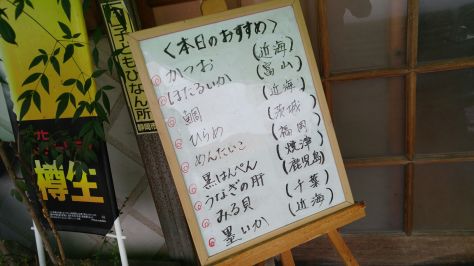 <本日のおすすめ>
◎かつお (近海)
◎ほたるいか (富山)
◎鯛 (近海)
◎ひらめ (茨城)
◎めんたいこ (福岡)
◎黒はんぺん (焼津)
◎うなぎの肝 (鹿児島)
◎みる貝 (千葉)
◎墨いか (近海)
子どもひなん所
静岡市
樽生